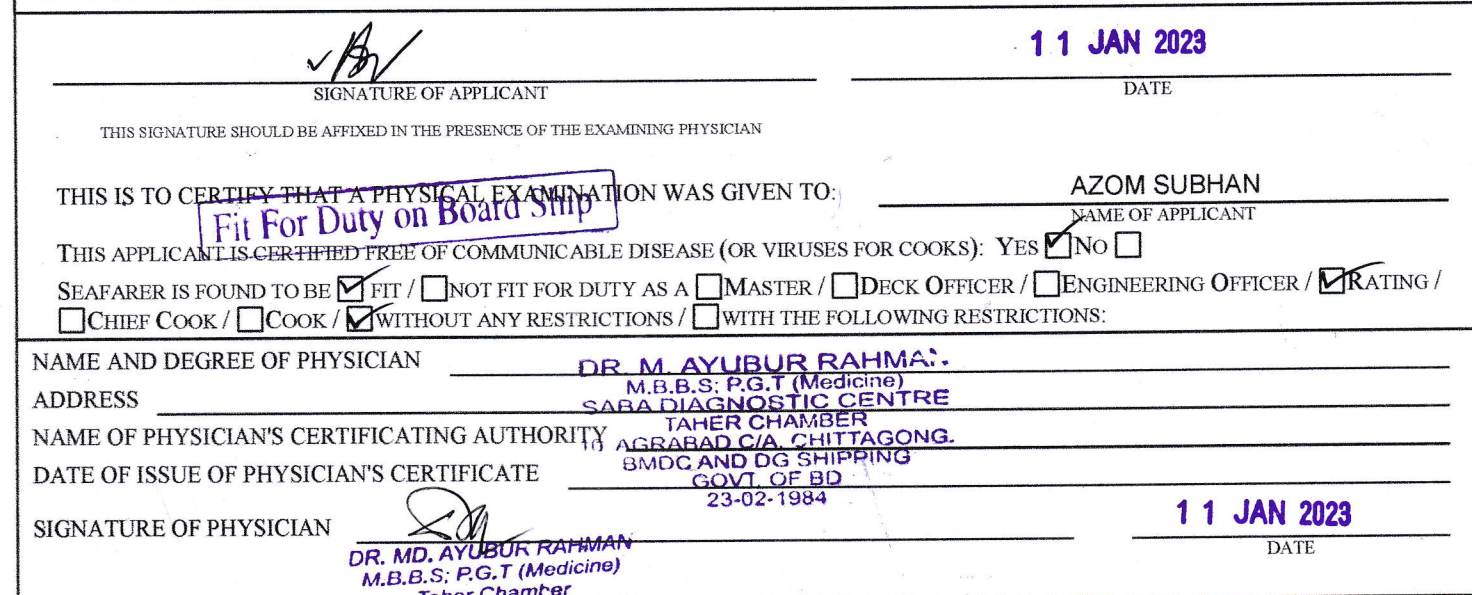 11 JAN 2023
SIGNATURE OF APPLICANT DATE
THIS SIGNATURE SHOULD BE AFFIXED IN THE PRESENCE OF THE EXAMINING PHYSICIAN
THIS IS TO CERTIFY THAT A PHYSICAL EXAMINATION WAS GIVEN TO: AZOM SUBHAN
NAME OF APPLICANT
Fit For Duty on Board Ship
THIS APPLICANT IS CERTIFIED FREE OF COMMUNICABLE DISEASE (OR VIRUSES FOR COOKS): YES ☑ NO ☐
SEAFARER IS FOUND TO BE ☑ FIT / ☐ NOT FIT FOR DUTY AS A ☐ MASTER / ☐ DECK OFFICER / ☐ ENGINEERING OFFICER / ☑ RATING /
☐ CHIEF COOK / ☐ COOK / ☑ WITHOUT ANY RESTRICTIONS / ☐ WITH THE FOLLOWING RESTRICTIONS:
NAME AND DEGREE OF PHYSICIAN DR. M. AYUBUR RAHMA
M.B.B.S; P.G.T (Medicine)
ADDRESS SABA DIAGNOSTIC CENTRE
TAHER CHAMBER
NAME OF PHYSICIAN'S CERTIFICATING AUTHORITY 10 AGRABAD C/A. CHITTAGONG.
BMDC AND DG SHIPPING
DATE OF ISSUE OF PHYSICIAN'S CERTIFICATE GOVT. OF BD
23-02-1984
SIGNATURE OF PHYSICIAN 11 JAN 2023
DATE
DR. MD. AYUBUR RAHMAN
M.B.B.S; P.G.T (Medicine)
Taher Chamber